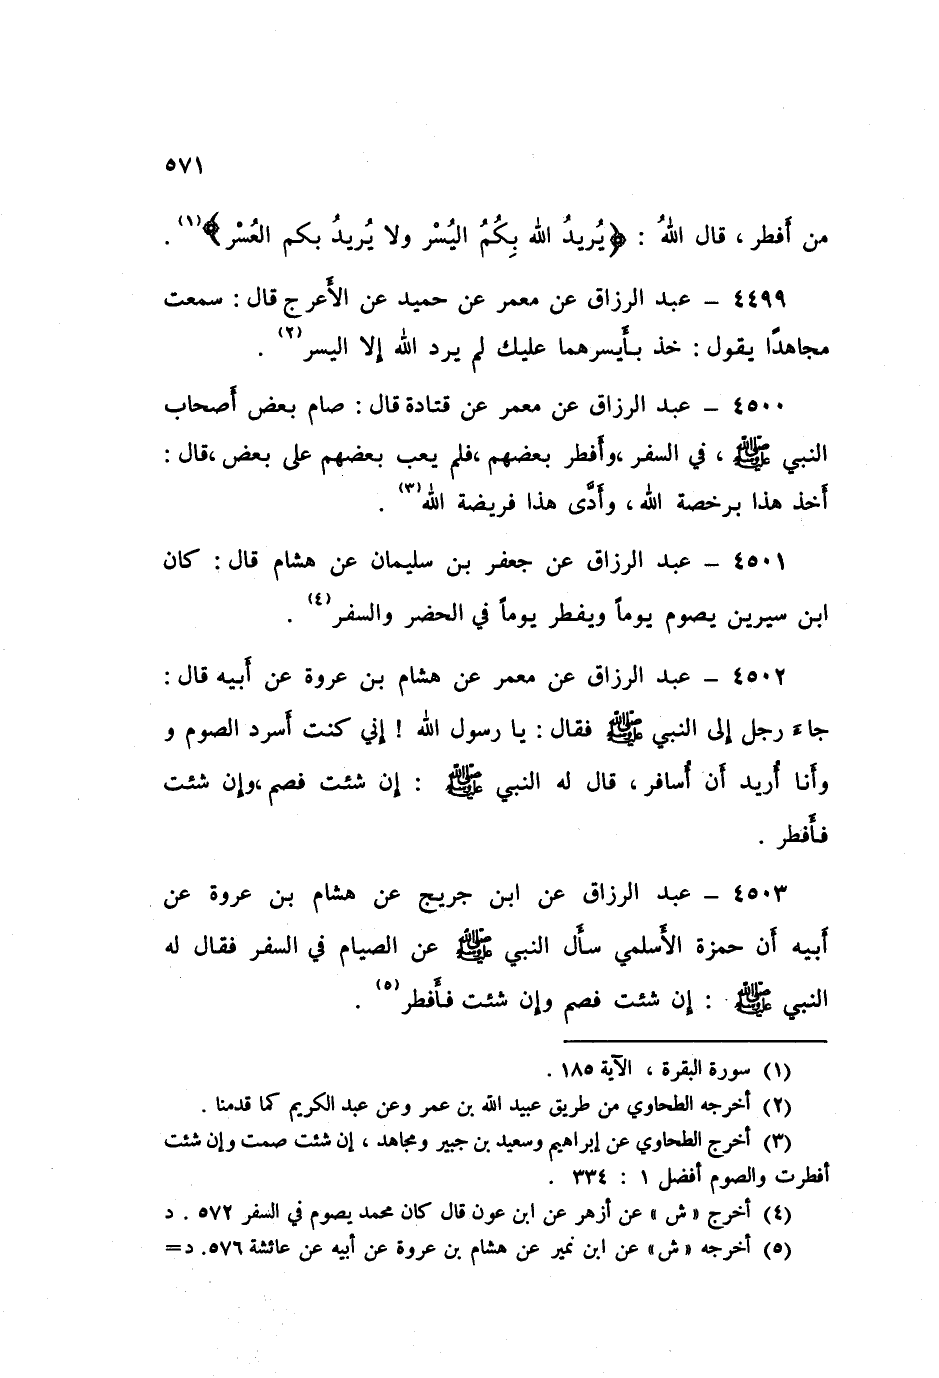 ٥٧١
من أَفطر ، قال اللهُ : ﴿يُريدُ الله بِكُمُ اليُسْر ولا يُريدُ بكم العُسْر﴾(١) .
٤٤٩٩ – عبد الرزاق عن معمر عن حميد عن الأَعرج قال : سمعت
مجاهدًا يقول : خذ بأَيسرهما عليك لم يرد الله إلا اليسر(٢) .
٤٥٠٠ – عبد الرزاق عن معمر عن قتادة قال : صام بعض أَصحاب
النبي ﷺ ، في السفر ،وأَفطر بعضهم ،فلم يعب بعضهم على بعض ،قال :
أَخذ هذا برخصة الله ، وأَدَّى هذا فريضة الله(٣) .
٤٥٠١ – عبد الرزاق عن جعفر بن سليمان عن هشام قال : كان
ابن سيرين يصوم يوماً ويفطر يوماً في الحضر والسفر(٤) .
٤٥٠٢ – عبد الرزاق عن معمر عن هشام بن عروة عن أَبيه قال :
جاءَ رجل إلى النبي ﷺ فقال : يا رسول الله ! إني كنت أَسرد الصوم و
وأَنا أُريد أَن أُسافر ، قال له النبي ﷺ : إن شئت فصم ،وإن شئت
فأَفطر .
٤٥٠٣ – عبد الرزاق عن ابن جريج عن هشام بن عروة عن
أَبيه أَن حمزة الأَسلمي سأَل النبي ﷺ عن الصيام في السفر فقال له
النبي ﷺ : إن شئت فصم وإن شئت فأَفطر(٥) .
(١) سورة البقرة ، الآية ١٨٥ .
(٢) أخرجه الطحاوي من طريق عبيد الله بن عمر وعن عبد الكريم كما قدمنا .
(٣) أخرج الطحاوي عن إبراهيم وسعيد بن جبير ومجاهد ، إن شئت صمت وإن شئت
أفطرت والصوم أفضل ١ : ٣٣٤ .
(٤) أخرج «ش» عن أزهر عن ابن عون قال كان محمد يصوم في السفر ٥٧٢ . د
(٥) أخرجه «ش» عن ابن نمير عن هشام بن عروة عن أبيه عن عائشة ٥٧٦. د=